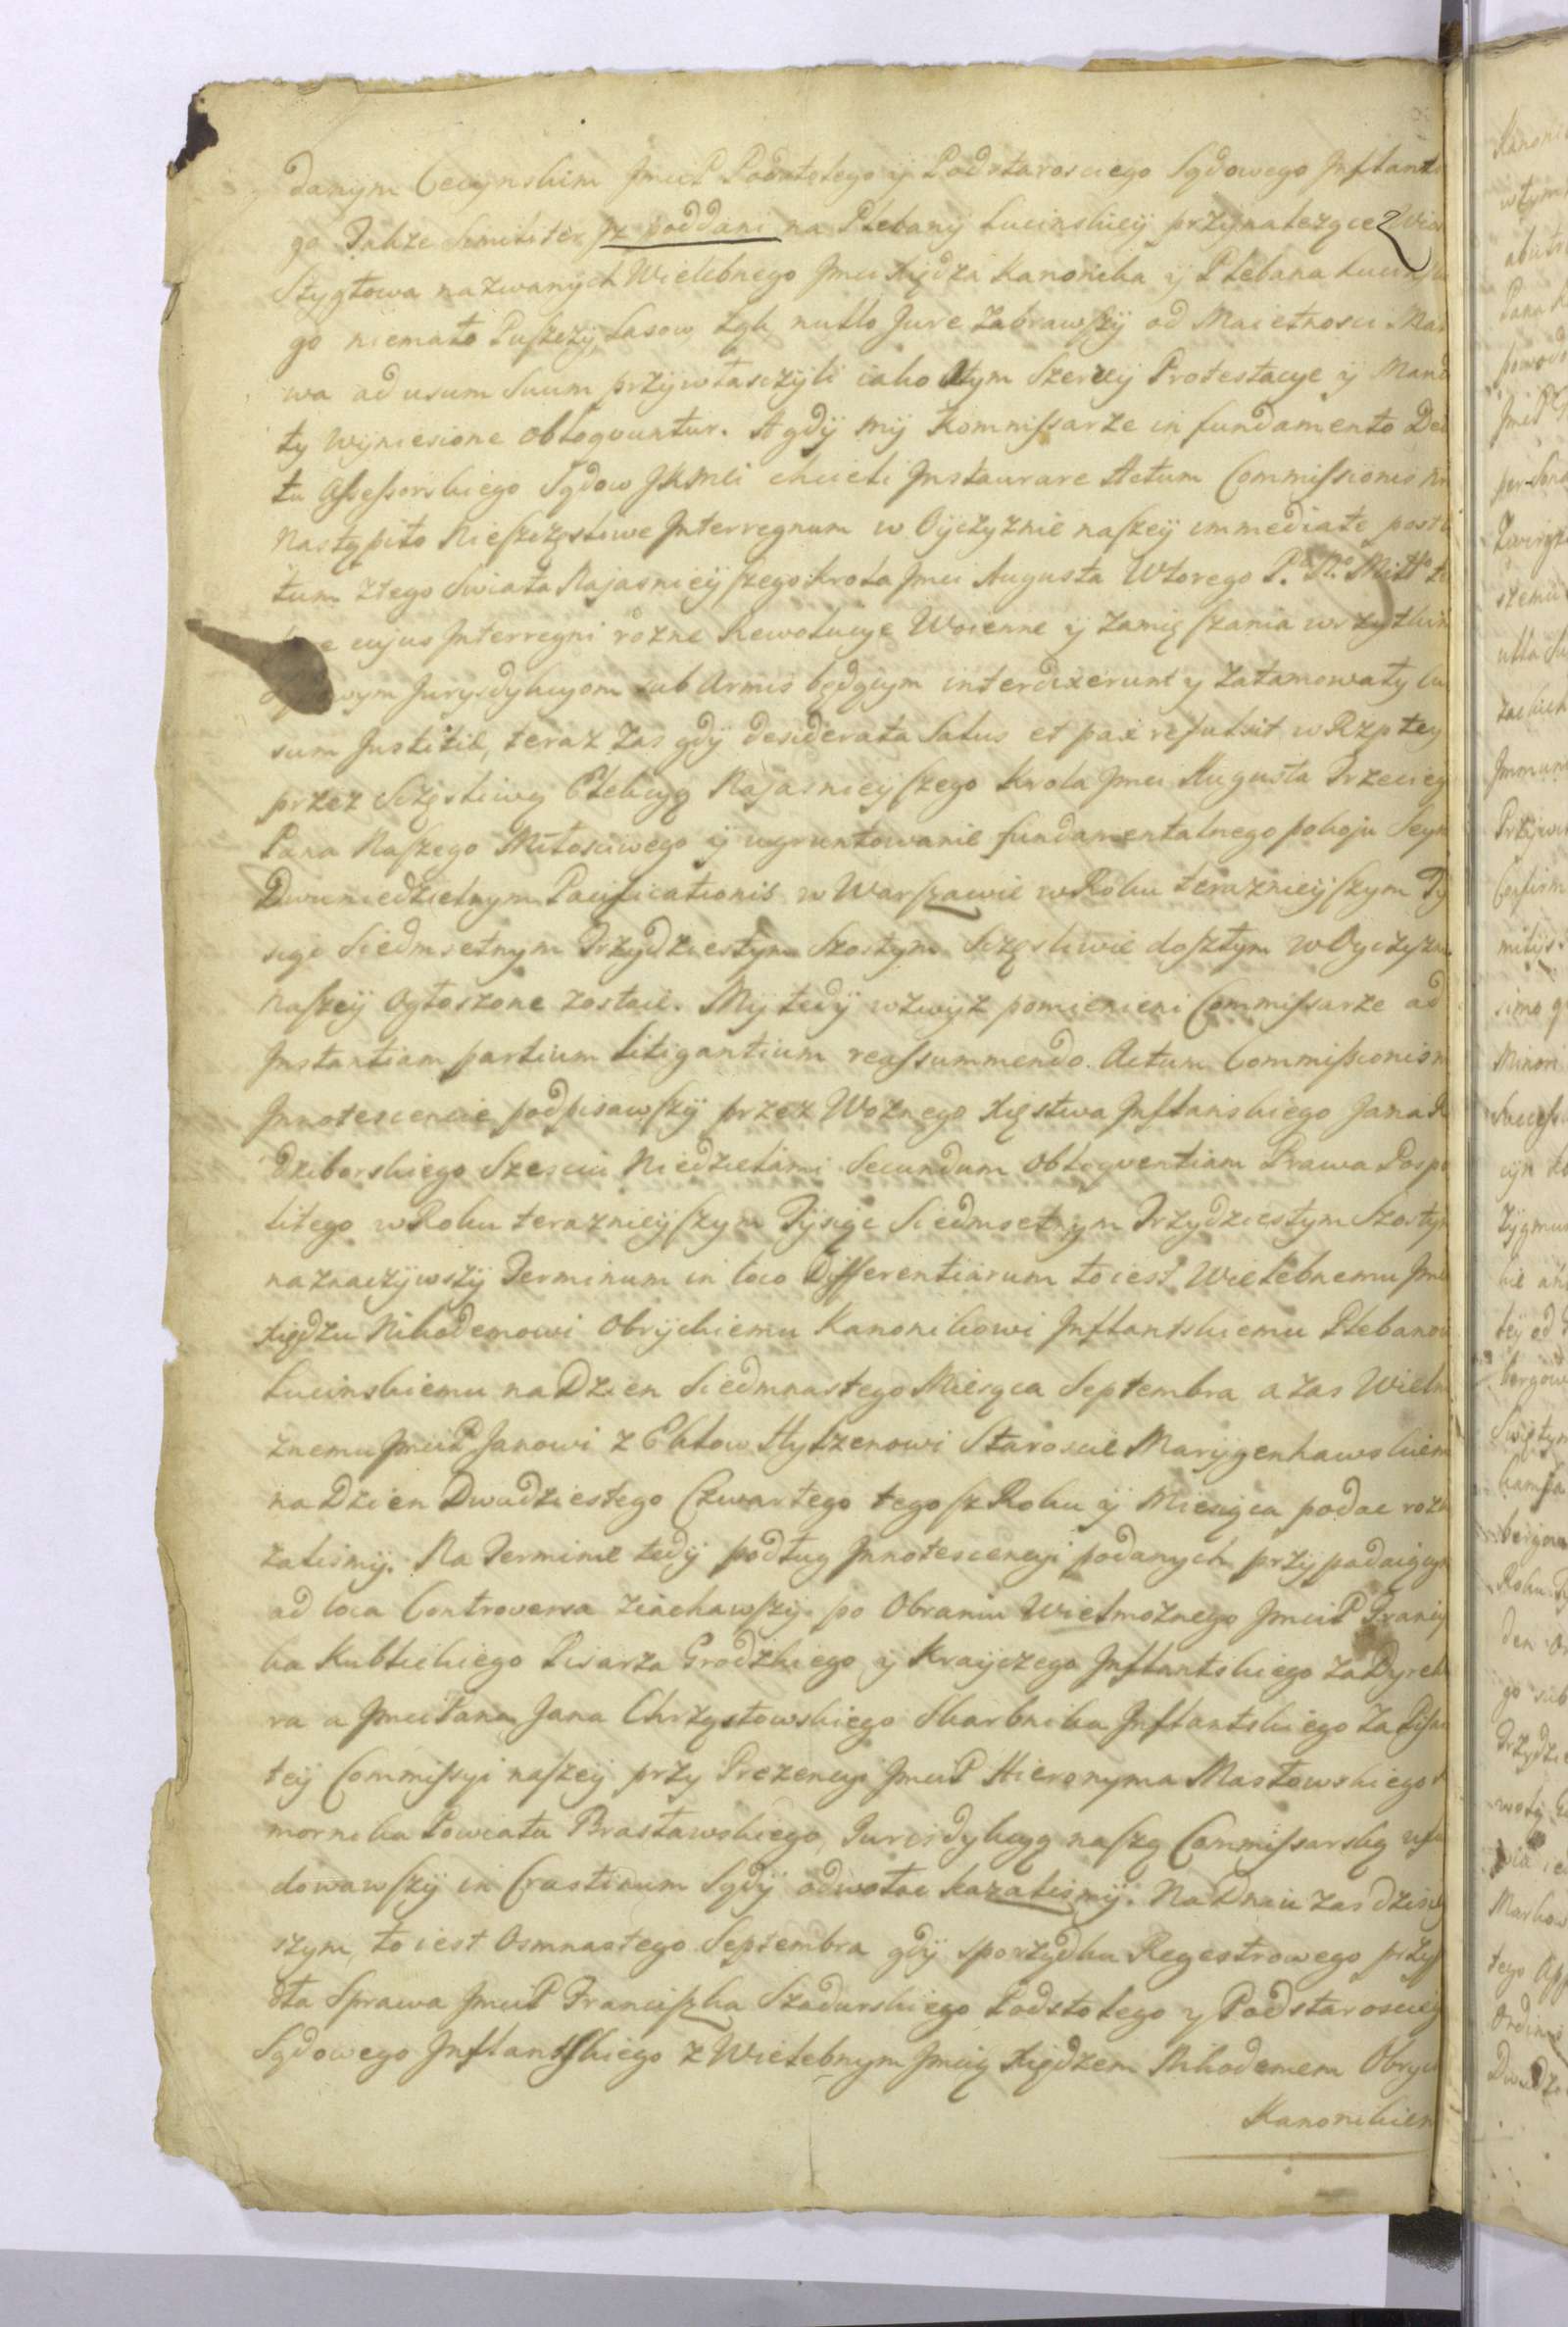 danym Cecynskim Jmci P Podstolego y Podstarosciego Sądowego Jnflants
go Takze Similiter sz poddani na Plebany Lucinskiey przynalezące z Wios
Stygłowa nazwanych Wielebnego Jmci Xiędza Kanonika y Plebana Lucinsk
go niemało Puszczy, Lasow, Łąk, nullo Jure Zabrawszy od Maiętnosci Mar
wa ad usum Suum przywłaszczyli iako o tym Szerzey Protestacye y Mand
ty Wyniesione obloquuntur. A gdy my Kommissarze in fundamento Dek
tu Assessorskiego Sądow JKMci chcieli Jnstaurare Actum Commissionis
Nastąpiło Nieszczęsliwe Jnterregnum w Oyczyznie naszey immediate post
tum z tego Swiata Najasnieyszego Krola Jmci Augusta Wtorego P. N. Miłło
cujus Jnterregni rożne Rewolucye Woienne y Zamięszania wszytkim
wym Jurysdykcyom sub Armis będącym interdixerunt y Zatamowały Cur
sum Justitiæ, teraz Zas gdy desiderata Salus et pax refulsit w Rzptey
przez Sczęsliwą Elekcyą Najasnieyszego Krola Jmci Augusta Trzecieg
Pana Naszego Miłosciwego y ugruntowanie fundamentalnego pokoju Seym
Dwuniedzielnym Pacificationis w Warszawie w Roku teraznieyszym Ty
siąc Siedmsetnym Trzydziestym Szostym Sczęsliwie doszłym w Oyczyzn
Naszey Ogłoszone zostaie. My tedy wzwyz pomienieni Commissarze ad
Jnstantiam partium litigantium reassummendo Actum Commissionis n
Jnnotescencie podpisawszy przez Woznego Xięstwa Jnflanskiego Jana
dziborskiego Szescią Niedzielami Secundum Obloqventiam Prawa Pospo
litego w Roku teraznieyszym Tysiąc Siedmsetnym Trzydziestym Szostym
naznaczywszy Terminum in loco Differentiarum to iest Wielebnemu Jmci
Xiędzu Nikodemowi Obryckiemu Kanonikowi Jnflantskiemu Plebanow
Lucinskiemu na Dzien Siedmnastego Miesąca Septembra a Zas Wielm
znemu Jmci P Janowi z Ekłow Hylzenowi Staroscie Marygenhawskiem
na Dzien Dwudziestego Czwartego tegosz Roku y Miesiąca podac roz
zalismy. Na Terminie tedy podług Jnnotescencyi podanych przypadaiącyc
ad loca Controversa ziachawszy po Obraniu Wielmoznego Jmci P Francisz
ka Kublickiego Pisarza Grodzkiego y Krayczego Jnflantskiego za Dyrek
ra a Jmci Pana Jana Chrzystowskiego Skarbnika Jnflantskiego Za Pisa
tey Commissyi naszey przy Prezencyi Jmci P Hieronyma Masłowskiego
mornika Powiatu Brasławskiego, Jurisdykcyą naszą Commissarską ufu
dowawszy in Crastinum Sądy odwołac kazalismy. Na Dniu zas dzisiey
szym, to iest Osmnastego Septembra gdy z porządku Regestrowego przyp
dła Sprawa Jmci P Franciszka Szadurskiego Podstolego y Podstarosciego
Sądowego Jnflantskiego z Wielebnym Jmcią Xiędzem Nikodemem Obryc
Kanonikiem